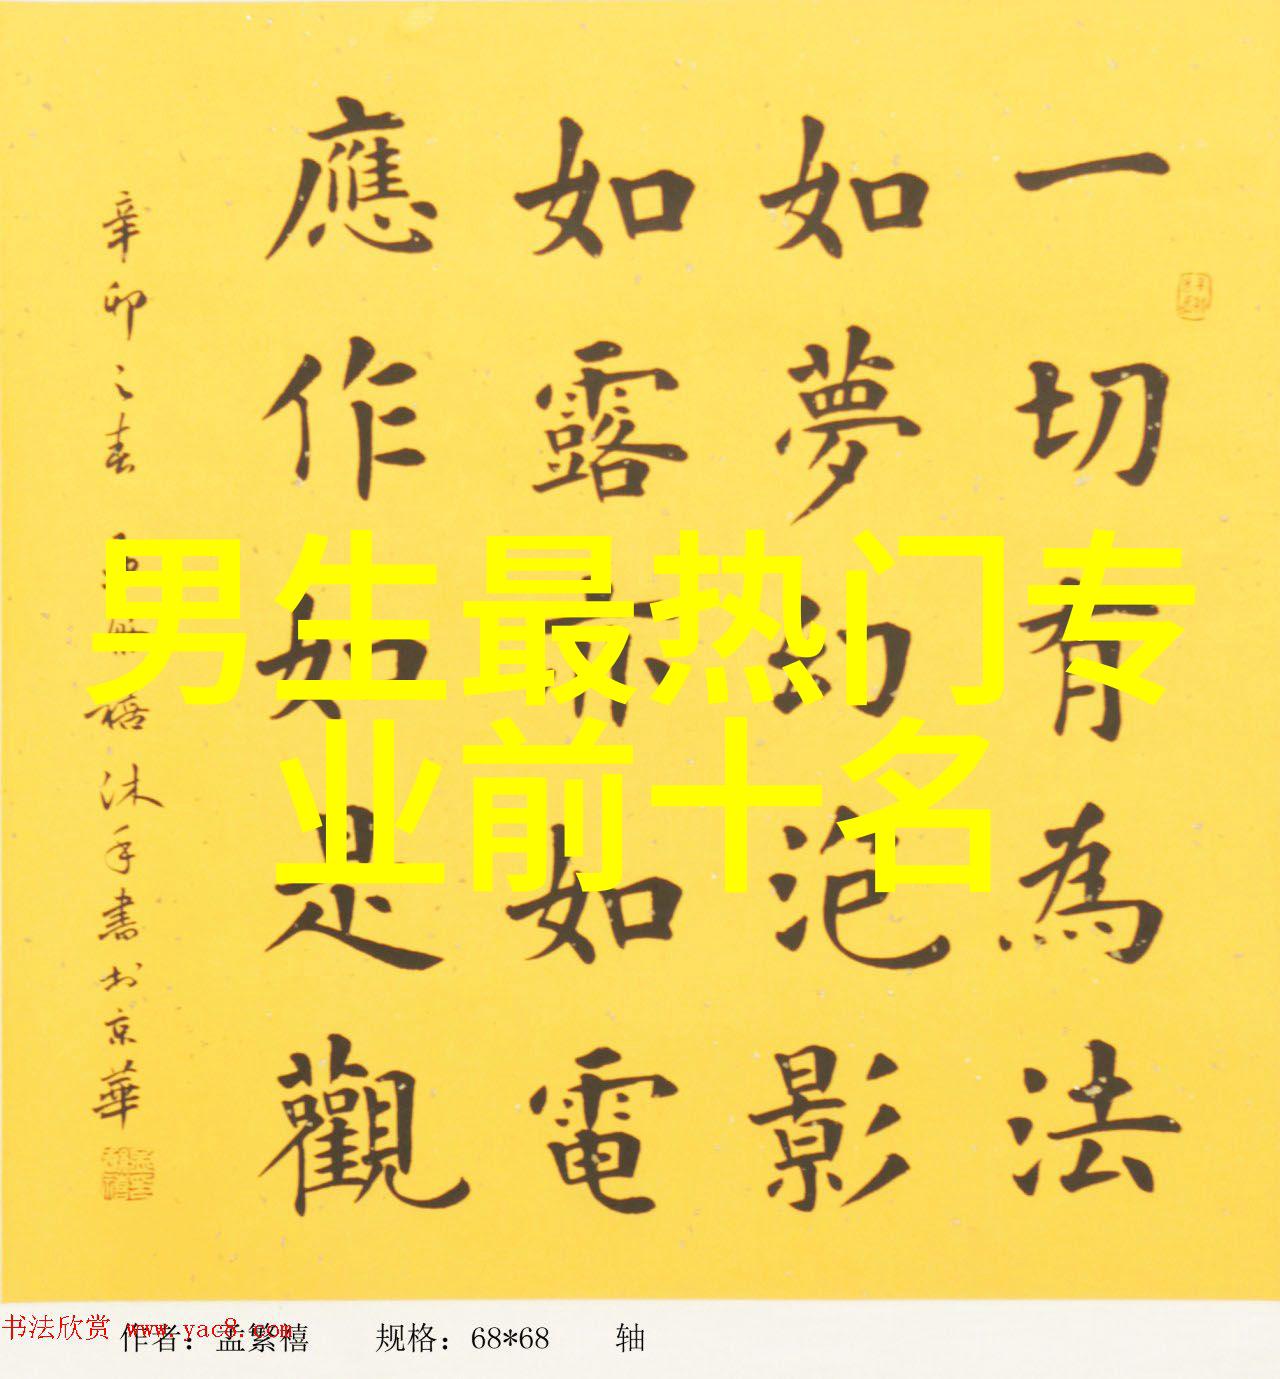 一切有為法
如夢幻泡影
如露亦如電
應作如是觀
辛卯之春 孟繁禧沐手書於京華
男生最热门专
业前十名
书法欣赏 www.yac8.com
作者：孟繁禧 规格：68*68 轴